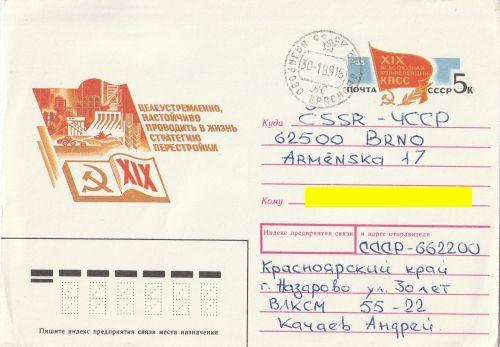 XIX
ВСЕСОЮЗНАЯ
КОНФЕРЕНЦИЯ
КПСС
ПОЧТА СССР 5к
НАЗАРОВО СССР
ЦЕЛЕУСТРЕМЛЕННО,
НАСТОЙЧИВО
ПРОВОДИТЬ В ЖИЗНЬ
СТРАТЕГИЮ
ПЕРЕСТРОЙКИ
XIX
Куда ČSSR - ЧССР
62500 BRNO
ARMÉNSKA 17
Кому
Индекс предприятия связи и адрес отправителя
СССР-662200
Красноярский край
г. Назарово ул. 30 лет
ВЛКСМ 55-22
Качаев Андрей.
Пишите индекс предприятия связи места назначения